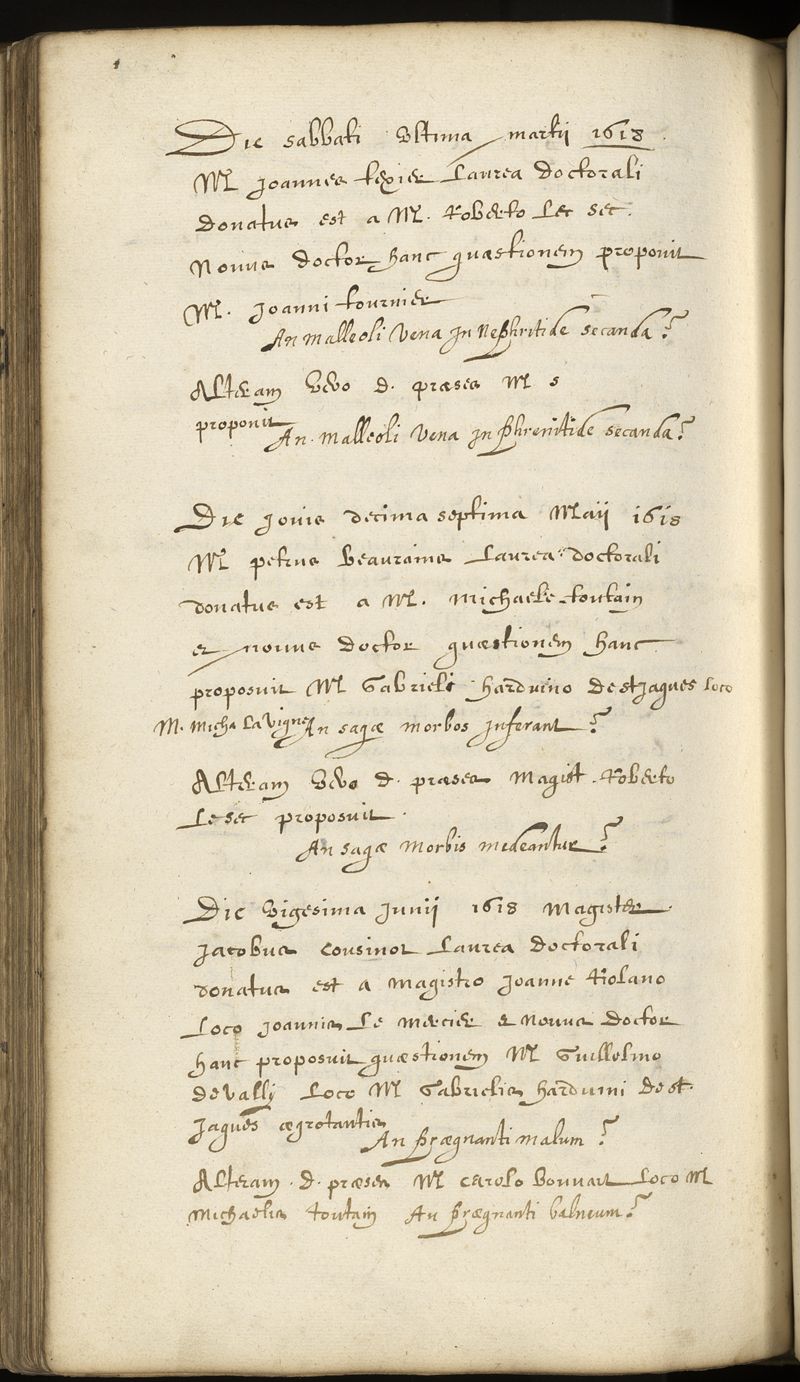 Die sabbati Vltima martij 1618.
M. Joannes texier Laurea doctorali
donatus est a M. Roberto Le sec.
Nouus doctor hanc quæstionem proponit
M. Joanni tournier
An malleoli Vena In Nephritide secanda?
Alteram Vero d. præses M s
proponit
An malleoli Vena In phrenitide secanda?
Die Jouis decima septima Maij 1618
M petrus beaurains Laurea doctorali
donatus est a M. michaele toutain
et nouus doctor quæstionem hanc
proposuit M Gabrieli harduino de st Jaques loco
M. Micha La Vigne An sagæ morbos Inferant?
Alteram Vero d. præses magist. Roberto
Le sec proposuit.
An sagæ morbis medeantur?
Die Vigesima Junij 1618 magister
Jacobus Cousinot Laurea doctorali
donatus est a magistro Joanne Riolano
Loco Joannis Le mercier et Nouus doctor
hanc proposuit quæstionem M Guillelmo
de Vallj Loco M Gabrielis harduini de st.
Jaques ægrotantis
An prægnanti malum?
Alteram d. præses M carolo bouuart Loco M
michaelis toutain An prægnanti balneum?